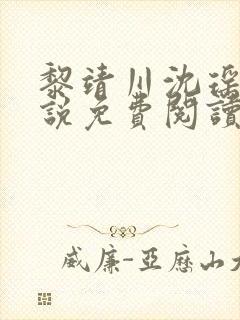 黎靖川沈瑶
說免費閱讀
威廉-亞歷山大